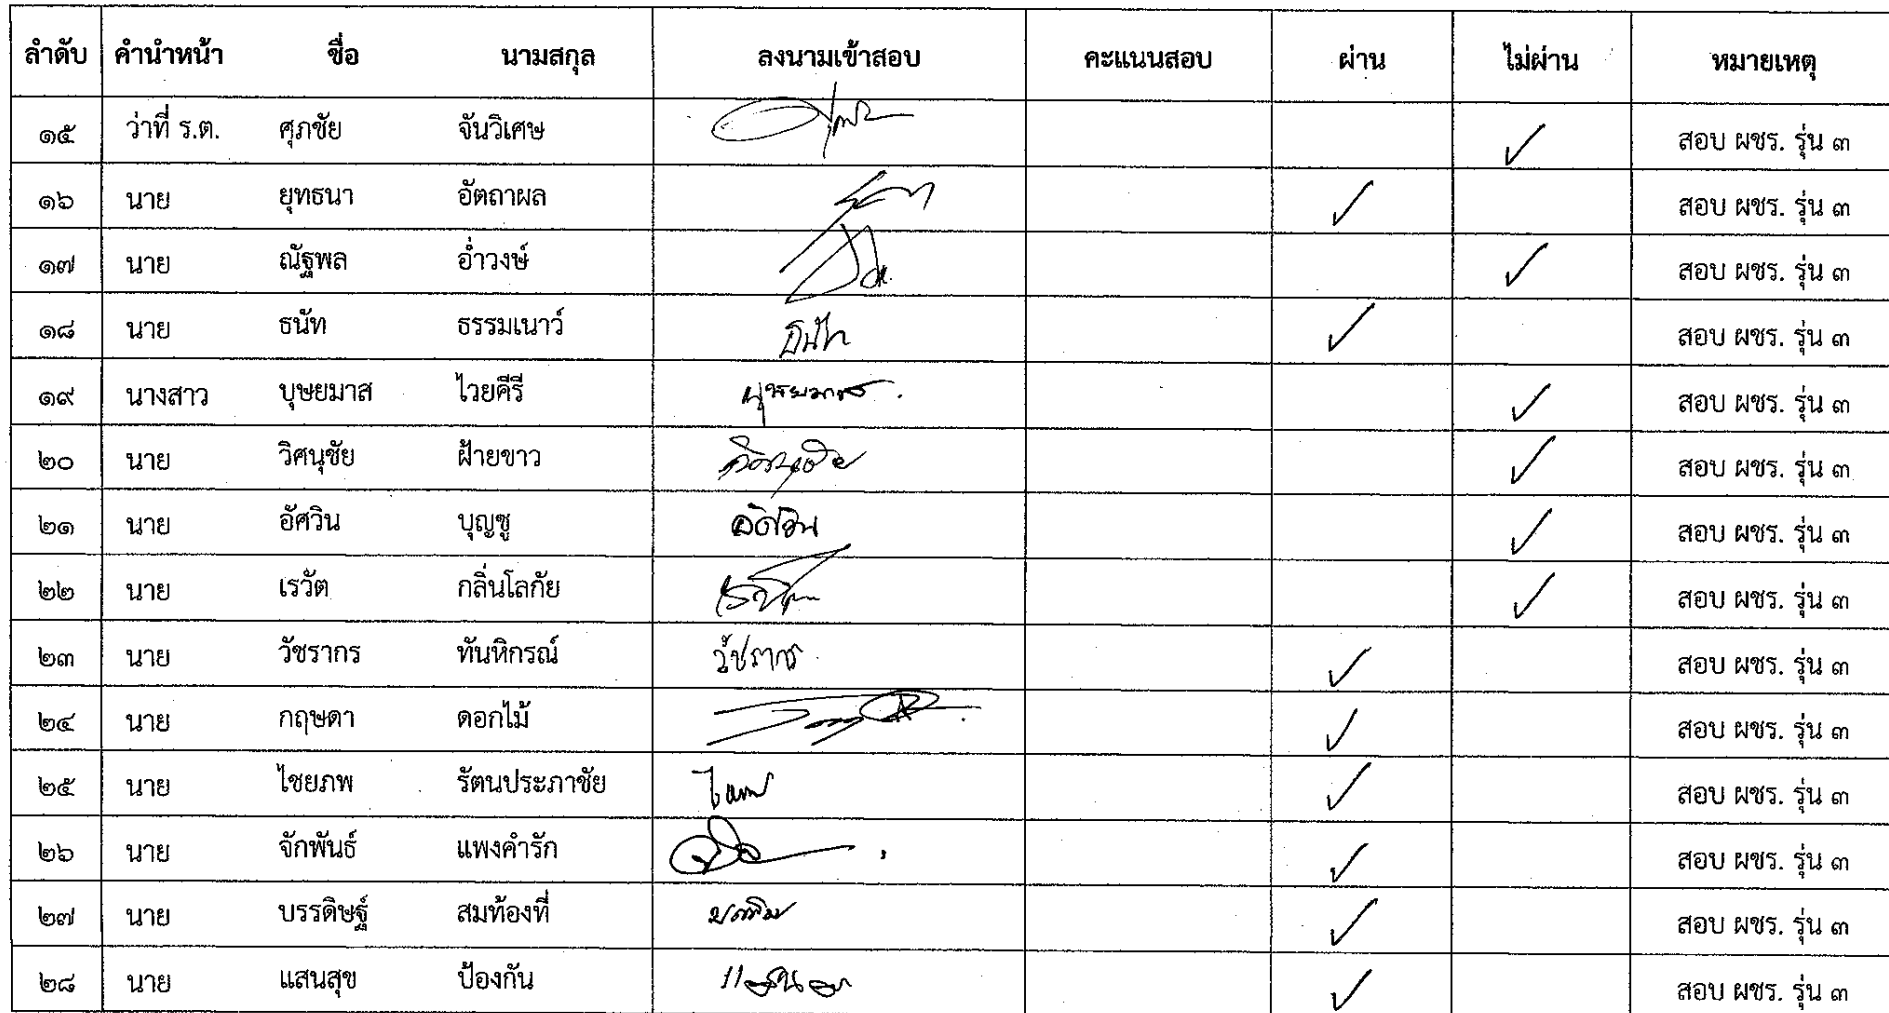 ลำดับ คำนำหน้า ชื่อ นามสกุล ลงนามเข้าสอบ คะแนนสอบ ผ่าน ไม่ผ่าน หมายเหตุ
๑๕ ว่าที่ ร.ต. ศุภชัย จันวิเศษ ✓ สอบ ผชร. รุ่น ๓
๑๖ นาย ยุทธนา อัตถาผล ✓ สอบ ผชร. รุ่น ๓
๑๗ นาย ณัฐพล อ่ำวงษ์ ✓ สอบ ผชร. รุ่น ๓
๑๘ นาย ธนัท ธรรมเนาว์ ✓ สอบ ผชร. รุ่น ๓
๑๙ นางสาว บุษยมาส ไวยคีรี บุษยมาส ✓ สอบ ผชร. รุ่น ๓
๒๐ นาย วิศนุชัย ฝ้ายขาว วิศนุชัย ✓ สอบ ผชร. รุ่น ๓
๒๑ นาย อัศวิน บุญชู อัศวิน ✓ สอบ ผชร. รุ่น ๓
๒๒ นาย เรวัต กลิ่นโลกัย ✓ สอบ ผชร. รุ่น ๓
๒๓ นาย วัชรากร ทันหิกรณ์ วัชรากร ✓ สอบ ผชร. รุ่น ๓
๒๔ นาย กฤษดา ดอกไม้ ✓ สอบ ผชร. รุ่น ๓
๒๕ นาย ไชยภพ รัตนประภาชัย ✓ สอบ ผชร. รุ่น ๓
๒๖ นาย จักพันธ์ แพงคำรัก ✓ สอบ ผชร. รุ่น ๓
๒๗ นาย บรรดิษฐ์ สมท้องที่ ✓ สอบ ผชร. รุ่น ๓
๒๘ นาย แสนสุข ป้องกัน ✓ สอบ ผชร. รุ่น ๓